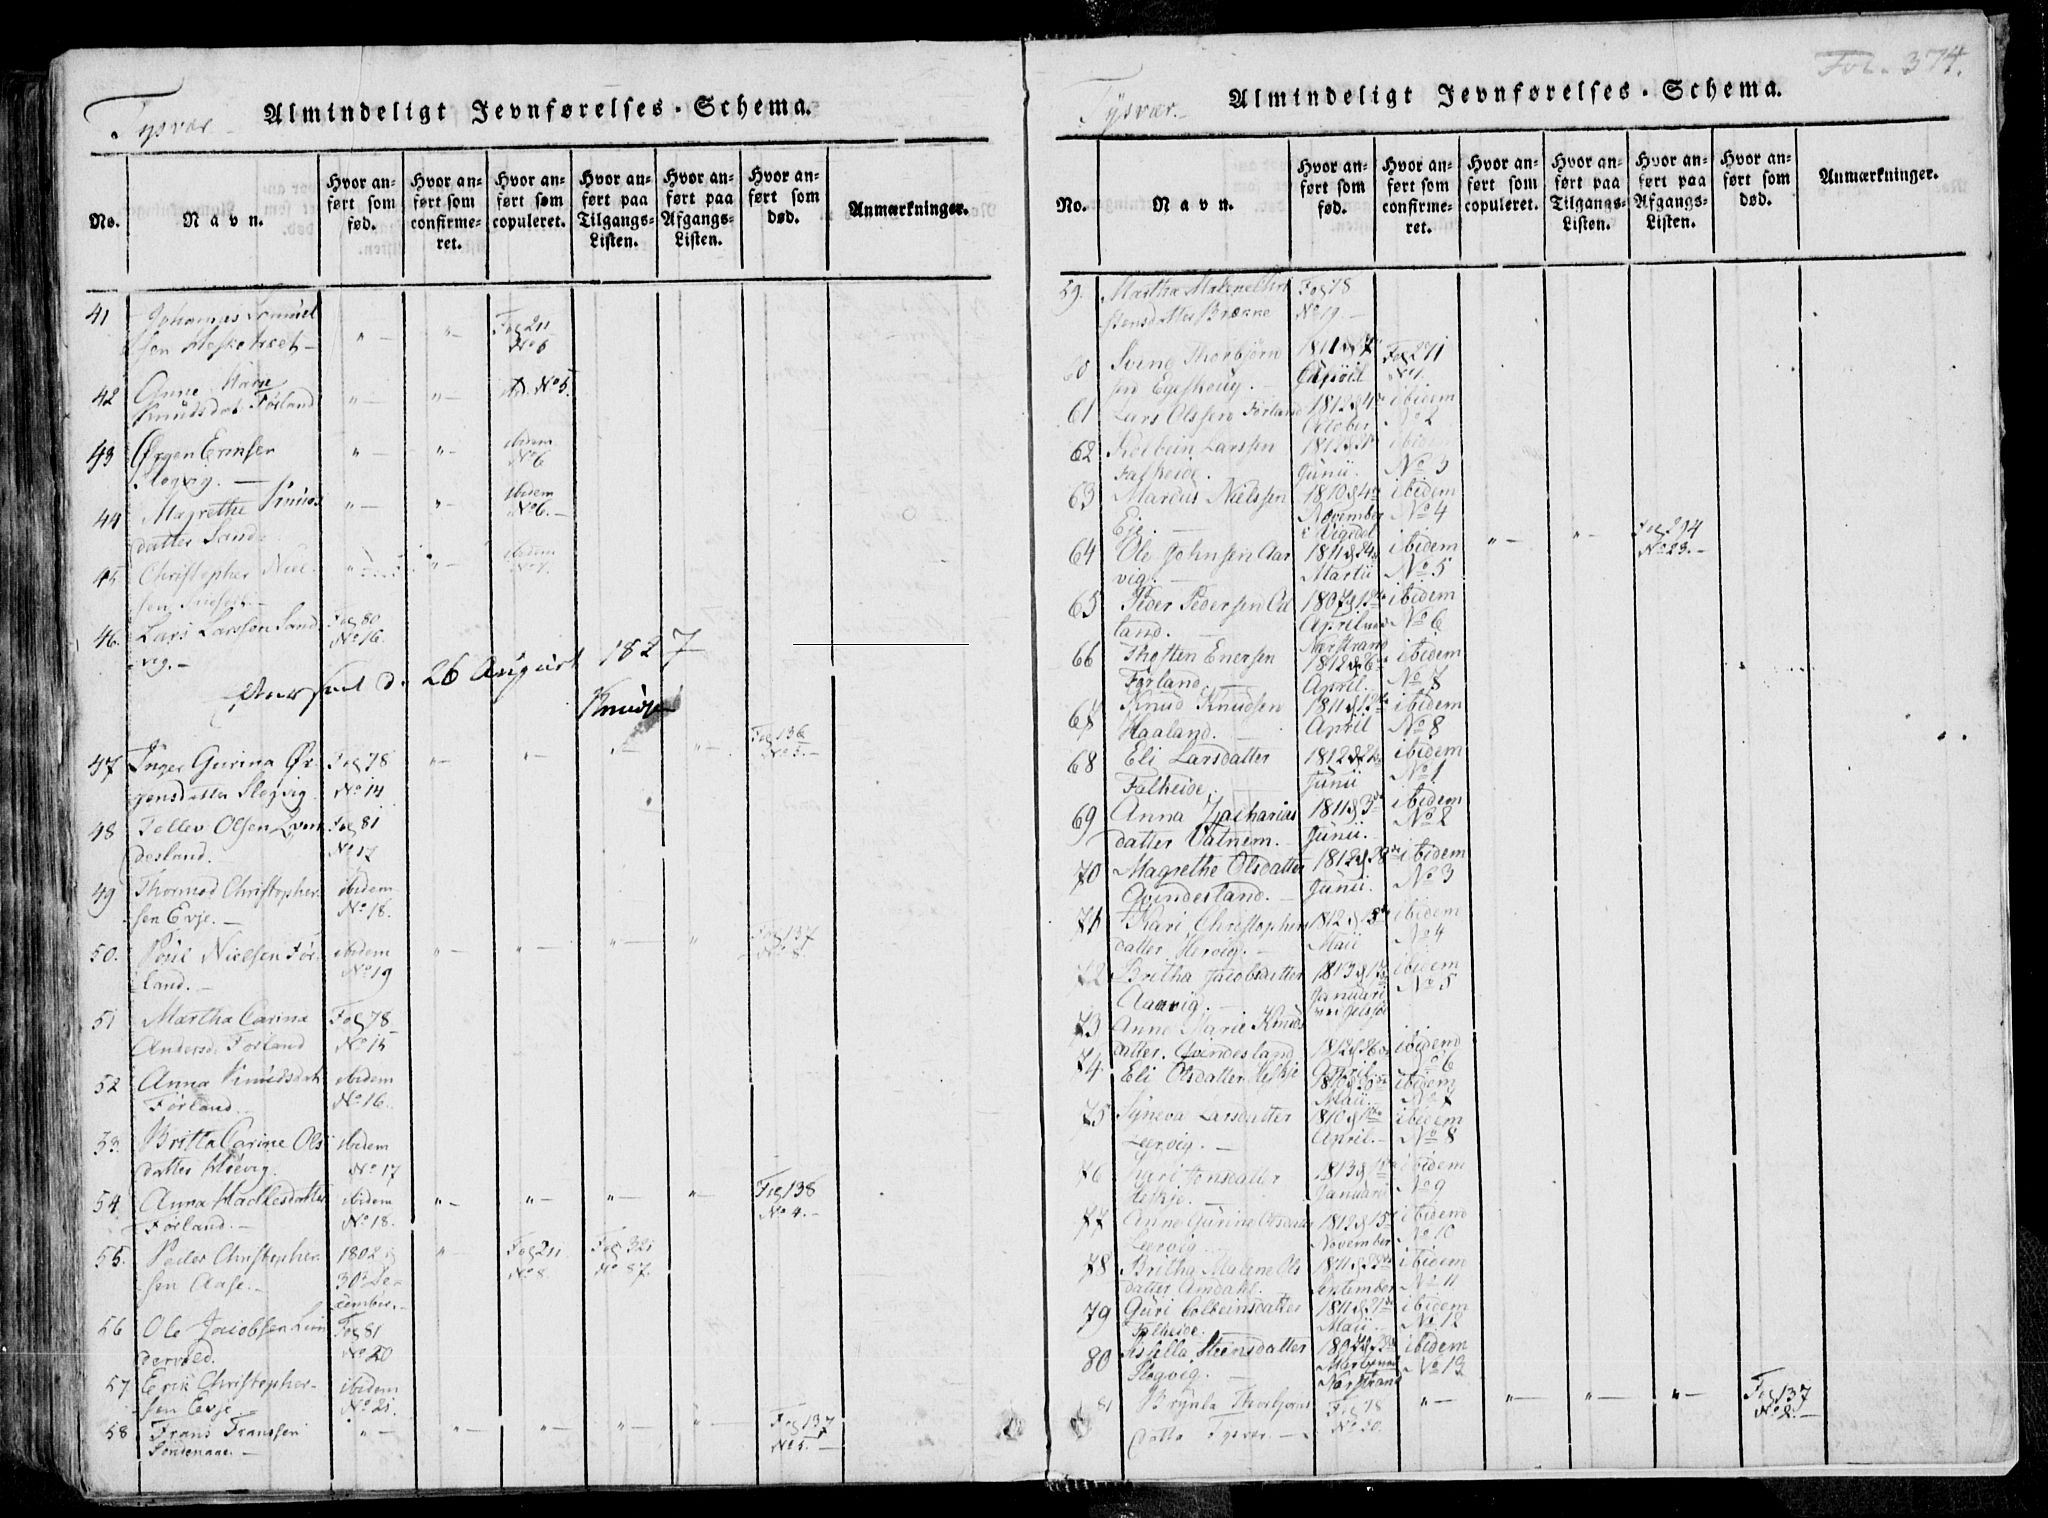 Tysvær
Almindeligt Jevnførelses-Schema.
No.
Navn.
Hvor anført som fød.
Hvor anført som confirmeret.
Hvor anført som copuleret.
Hvor anført paa Tilgangs-Listen.
Hvor anført paa Afgangs-Listen.
Hvor anført som død.
Anmærkninger.
41 Johannes
sen " " Fol 211
No 6
42 Anne Marie
Knudsdat. Førland " " No 5.
43 Ørgen Ericsen
Slogvig. " " ibidem
No 6
44 Magrethe Knuds
datter Sand " " ibidem
No 6.
45 Christopher Niel-
sen " " ibidem
46. Lars Larssen Sand
vig. Fol 80
No 16.
d. 26 August 1827
47 Inger Gurina Ør-
gensdatter Slogvig Fol 78
No 14 " " " " Fol 136
No 5.
48 Tollev Olsen Qvin
desland. Fol 81
No 17
49 Thormod Christopher-
sen Evje. ibidem
No 18.
50. Poul Nielsen Før-
land. ibidem
No 19 " " " " Fol 137
No 8.
51 Martha Carina
Andersd. Førland Fol 78
No 15
52 Anna Knudsdat.
Førland. ibidem
No 16.
53. Britta Carine Ols
datter Hervig. ibidem
No 17
54. Anna
Førland. ibidem
No 18. " " " " Fol 138
No 4.
55. Peder Christopher-
sen Aase. 1802
30 De-
cember. " Fol 211
No 8. Fol 321
No 87.
56 Ole Jacobsen Lin
dervold. Fol 81
No 20
57 Erik Christopher-
sen Evje ibidem
No 21.
58 Frans Franssen
" " " " " Fol 137
No 5.
Fol. 374.
Tysvær.
Almindeligt Jevnførelses-Schema.
No.
Navn.
Hvor anført som fød.
Hvor anført som confirmeret.
Hvor anført som copuleret.
Hvor anført paa Tilgangs-Listen.
Hvor anført paa Afgangs-Listen.
Hvor anført som død.
Anmærkninger.
59. Martha Malene
stensdatter Fol 78
No 19.
Svend Thorbjörn
sen Egeskoug. 1811
April Fol 271
No 1.
61 Lars Olssen Førland 1812 d 4
October ibidem
No 2
62 Kolbein Larssen
Falheide. 1812
Junii. ibidem
No 3
63 Marcus Nielssen
Eje. 1810 d 4
November
i Vigedal ibidem
No 4
64 Ole Johnsen Aar
vig. 1811 d 24
Martii ibidem
No 5 " " Fol 294
No 23.
65 Peder Pedersen
land. 1807
April
Nærstrand ibidem
No 6
66 Thosten Enersen
Førland. 1812 d 6
April. ibidem
No 7
67 Knud Knudsen
Haaland. 1811
April ibidem
No 8
68 Eli Larsdatter
Falheide. 1812
Junii ibidem
No 1
69 Anna Zacharias
datter Vatnem. 1811 d 3
Junii. ibidem
No 2
70 Magrethe Olsdatter
Qvindesland. 1812 d 28
Junii. ibidem
No 3
71 Kari Christophers
datter Hervig. 1812
Maii ibidem
No 4
72 Britha Jacobsdatter
Aarvig. 1813
Januarii
ibidem
No 5
73 Anne Marie Knuds
datter. Qvindesland 1812 d 26
April ibidem
No 6
74. Eli Olsdatter Heskje 1810
Maii. ibidem
No 7
75 Syneva Larsdatter
Leervig. 1810
April. ibidem
No 8
76 Kari Jonsdatter
Heskje. 1813
Januarii ibidem
No 9
77 Anne Gurine Olsdatter
Leervig 1812 d 15
November ibidem
No 10
78 Britha Malene Ols
datter Amdahl. 1811
September ibidem
No 11
79 Guri Colbeinsdatter
Falheide. 1811 d 21
Maii ibidem
No 12
80 Steensdatter
Slogvig. 1807
Nærstrand ibidem
No 13
81 Brynla Thorbjorns
datter Tysvær. Fol 78
No 20. " " " " Fol 137
No 2.